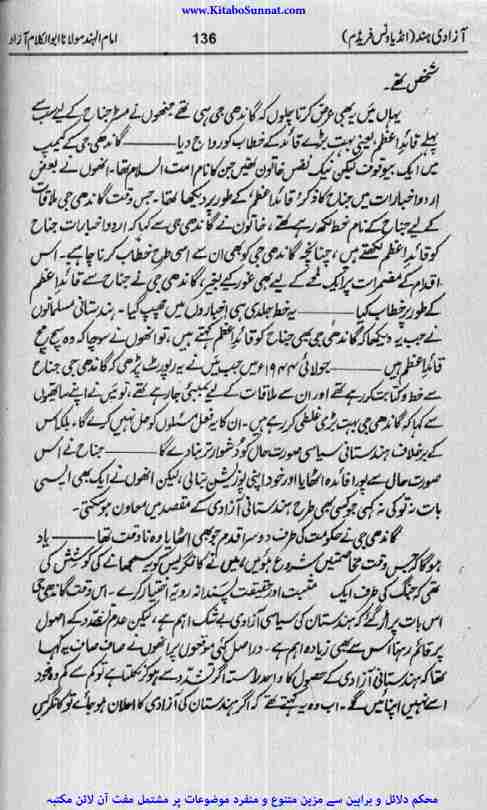 www.KitaboSunnat.com
آزادی ہند (انڈیا ونس فریڈم) 136 امام الہند مولانا ابوالکلام آزاد
شخص تھے۔
یہاں میں یہ بھی عرض کرتا چلوں کہ گاندھی جی ہی تھے جنھوں نے مسٹر جناح کے لیے سب سے
پہلے قائد اعظم، یعنی بہت بڑے قائد کے خطاب کو رواج دیا ——— گاندھی جی کے کیمپ
میں ایک بیوقوف لیکن نیک نفس خاتون تھیں جن کا نام امت السلام تھا۔ انھوں نے بعض
اردو اخبارات میں جناح کا ذکر قائد اعظم کے طور پر دیکھا تھا۔ جس وقت گاندھی جی ملاقات
کے لیے جناح کے نام خط لکھ رہے تھے، خاتون نے گاندھی جی سے کہا کہ اردو اخبارات جناح
کو قائد اعظم لکھتے ہیں، چنانچہ گاندھی جی کو بھی ان سے اسی طرح خطاب کرنا چاہیے۔ اس
اقدام کے مضمرات پر ایک لمحے کے لیے بھی غور کیے بغیر، گاندھی جی نے جناح سے قائد اعظم
کے طور پر خطاب کیا ——— یہ خط جلدی ہی اخباروں میں چھپ گیا۔ ہندستانی مسلمانوں
نے جب یہ دیکھا کہ گاندھی جی بھی جناح کو قائد اعظم کہتے ہیں، تو انھوں نے سوچا کہ وہ سچ مچ
قائد اعظم ہیں ——— جولائی ۱۹۴۴ء میں جب میں نے یہ رپورٹ پڑھی کہ گاندھی جی جناح
سے خط و کتابت کر رہے تھے اور ان سے ملاقات کے لیے بمبئی جا رہے تھے، تو میں نے اپنے ساتھیوں
سے کہا کہ گاندھی جی بہت بڑی غلطی کر رہے ہیں۔ ان کا یہ فعل مسئلوں کو حل نہیں کرے گا، بلکہ اس
کے برخلاف ہندستانی سیاسی صورت حال کو دشوار تر بنا دے گا ——— جناح نے اس
صورت حال سے پورا فائدہ اٹھایا اور خود اپنی پوزیشن بنالی، لیکن انھوں نے ایک بھی ایسی
بات نہ تو کی نہ کہی جو کسی بھی طرح ہندستانی آزادی کے مقصد میں معاون ہوسکتی۔
گاندھی جی نے حکومت کی طرف دوسرا قدم جو بھی اٹھایا وہ ناوقت تھا ——— یاد
ہوگا کہ جس وقت مخاصمتیں شروع ہوئیں، میں نے کانگریس کو یہ سمجھانے کی کوشش کی
تھی کہ جنگ کی طرف ایک مثبت اور حقیقت پسندانہ رویہ اختیار کرے۔ اس وقت گاندھی جی
اس بات پر اڑ گئے کہ ہندستان کی سیاسی آزادی بے شک اہم ہے، لیکن عدم تشدد کے اصول
پر قائم رہنا اس سے بھی زیادہ اہم ہے۔ دراصل کئی موقعوں پر انھوں نے صاف صاف یہ کہا
تھا کہ ہندستانی آزادی کے حصول کا واحد راستہ اگر تشدد سے ہو کر نکلتا ہے تو کم سے کم وہ خود
اسے نہیں اپنائیں گے۔ اب وہ یہ کہتے تھے کہ اگر ہندستان کی آزادی کا اعلان ہو جائے تو کانگریس
محکم دلائل و براہین سے مزین متنوع و منفرد موضوعات پر مشتمل مفت آن لائن مکتبہ